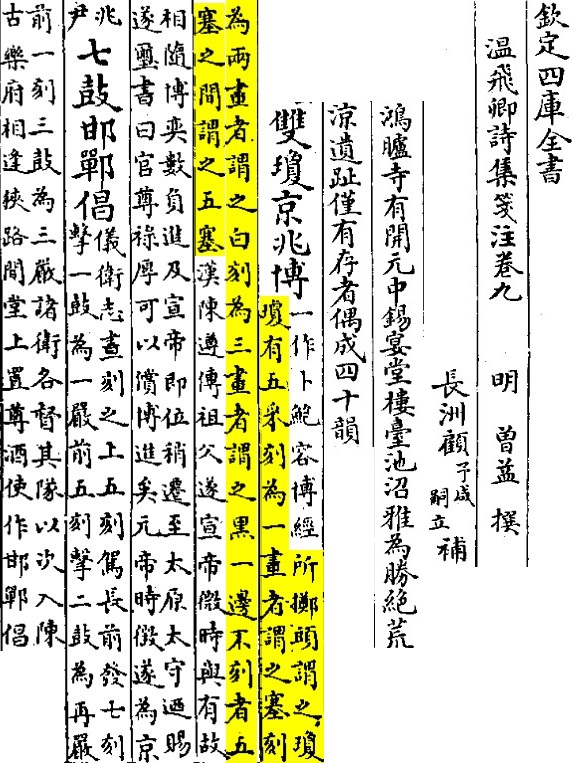 欽定四庫全書
溫飛卿詩集箋注卷九 明 曾益 撰
長洲顧予咸 嗣立 補
鴻臚寺有開元中錫宴堂樓臺池沼雅為勝絕荒
涼遺趾僅有存者偶成四十韻
雙瓊京兆博
一作卜鮑容博經所擲頭謂之瓊
瓊有五采刻為一畫者謂之塞刻
為兩畫者謂之白刻為三畫者謂之黑一邊不刻者五
塞之間謂之五塞漢陳遵傳祖父遂宣帝微時與有故
相隨博奕數負進及宣帝即位稍遷至太原太守迺賜
遂璽書曰官尊祿厚可以償博進矣元帝時徵遂為京
兆
尹
七鼓邯鄲倡
儀衛志晝刻之上五刻駕長前發七刻
擊一鼓為一嚴前五刻擊二鼓為再嚴
前一刻三鼓為三嚴諸衛各督其隊以次入陳
古樂府相逢狹路間堂上置尊酒使作邯鄲倡